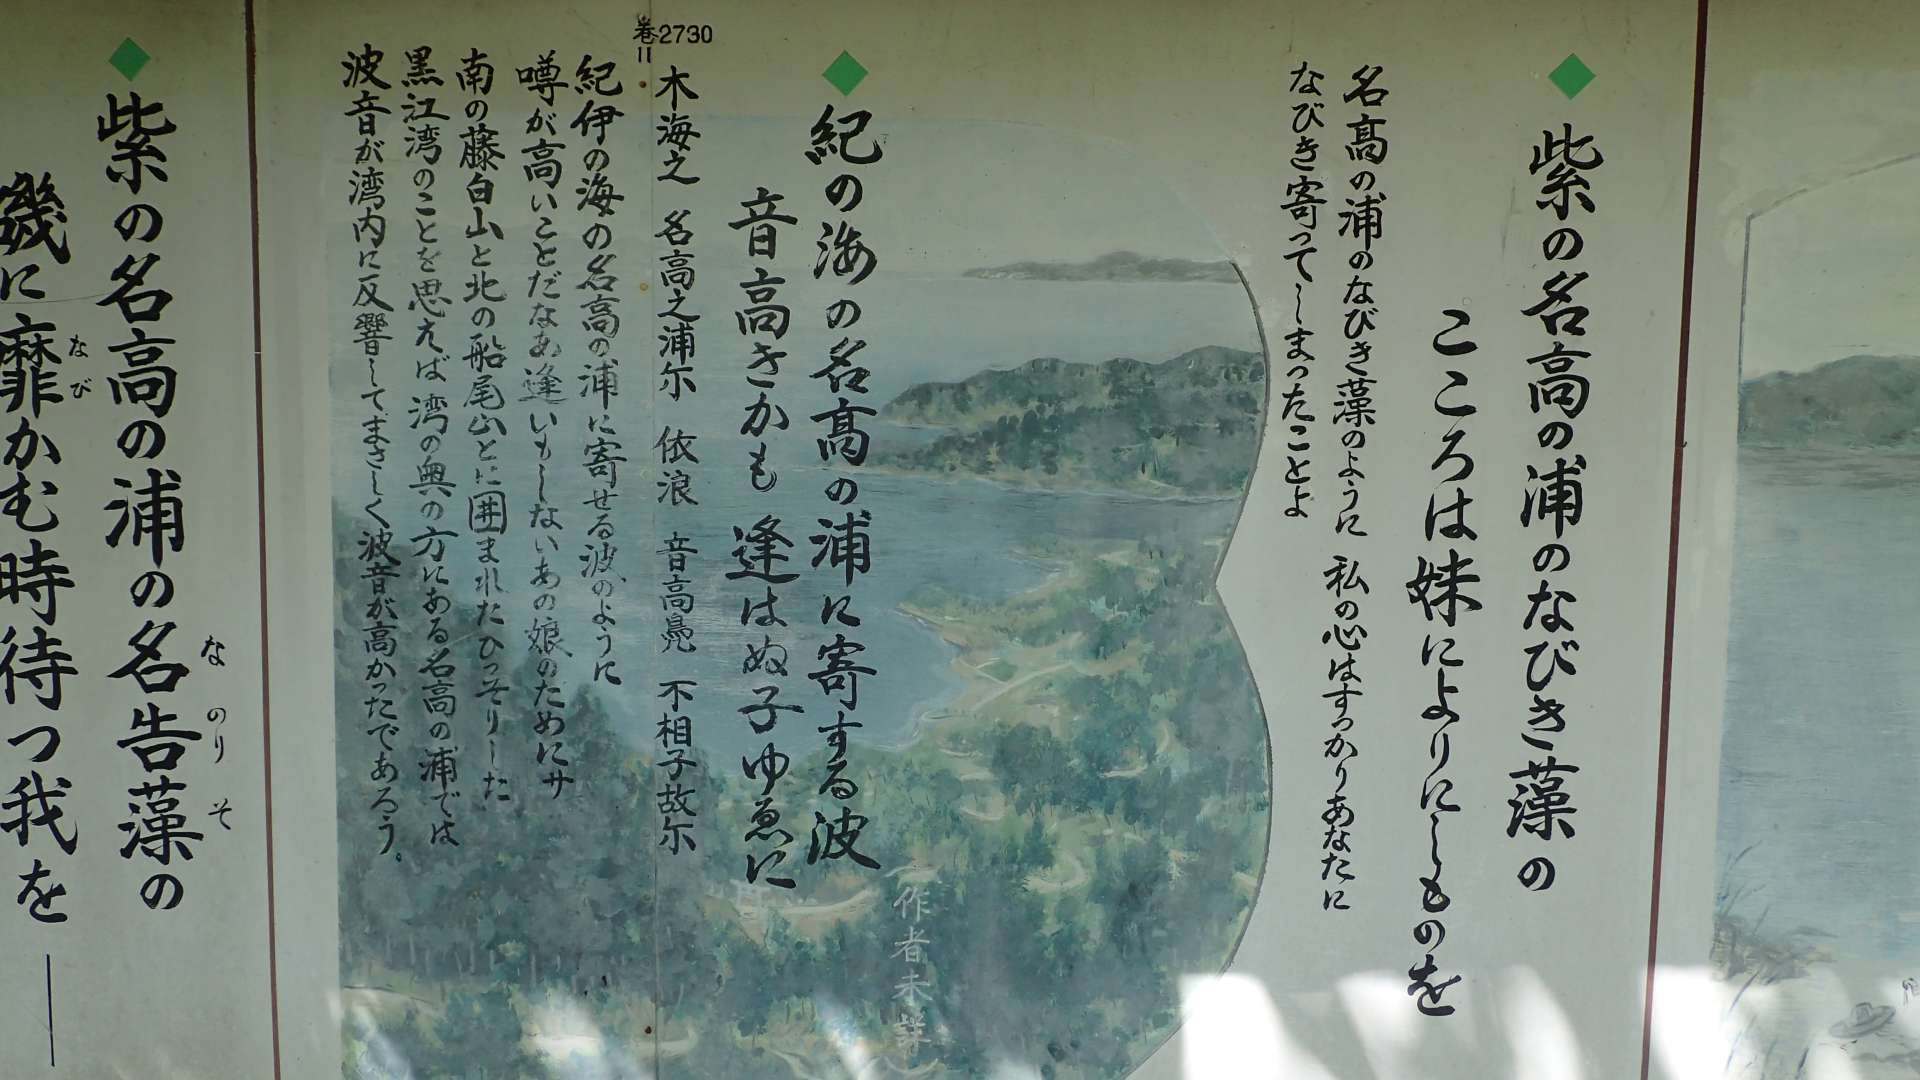 紫の名高の浦のなびき藻の
こころは妹によりにしものを
名高の浦のなびき藻のように 私の心はすっかりあなたに
なびき寄ってしまったことよ
紀の海の名高の浦に寄する波
音高きかも 逢はぬ子ゆゑに
作者未詳
巻11 2730
木海之 名高之浦尓 依浪 音高鳧 不相子故尓
紀伊の海の名高の浦に寄せる波のように
噂が高いことだなあ逢いもしないあの娘のためにサ
南の藤白山と北の船尾山とに囲まれたひっそりした
黒江湾のことを思えば湾の奥の方にある名高の浦では
波音が湾内に反響してまさしく波音が高かったであろう。
紫の名高の浦の名告藻の
なのりそ
磯に靡かむ時待つ我を
なび